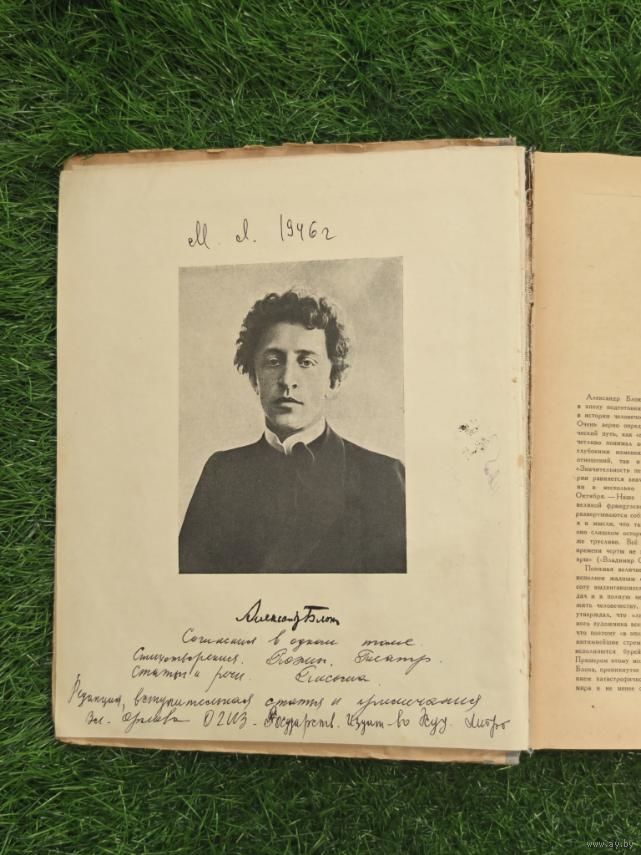 М. Л. 1946 г
Александр Блок
Сочинения в одном томе.
Стихотворения. Поэмы. Театр.
Статьи и речи. Письма.
Редакция, вступительная статья и примечания
Вл. Орлова ОГИЗ - Государств. Издат-во Худ. Литры
Александр Блок
в эпоху подготовки
в истории человече
Очень верно перед
ческий путь, как «
четливо понимал и
глубокими изменен
отношений, так и
«Значительность по
рии равняется знач
ни в несколько
Октября. — Наше
великой французско
развертываются соб
я и мысли, что та
оно слишком остор
же трусливо. Всё
времени черты не
врю» («Владимир С
Понимая величи
исполнен жадным
соту выдвигавшихся
дач и в полную ме
жать человечеству,
утверждал, что «
вого художника вс
что поэтому «в эпо
интимнейшие стрем
исполняются бурей
Примером этому мо
Блока, проникнутое
нием катастрофичес
мира и не менее
www.ay.by